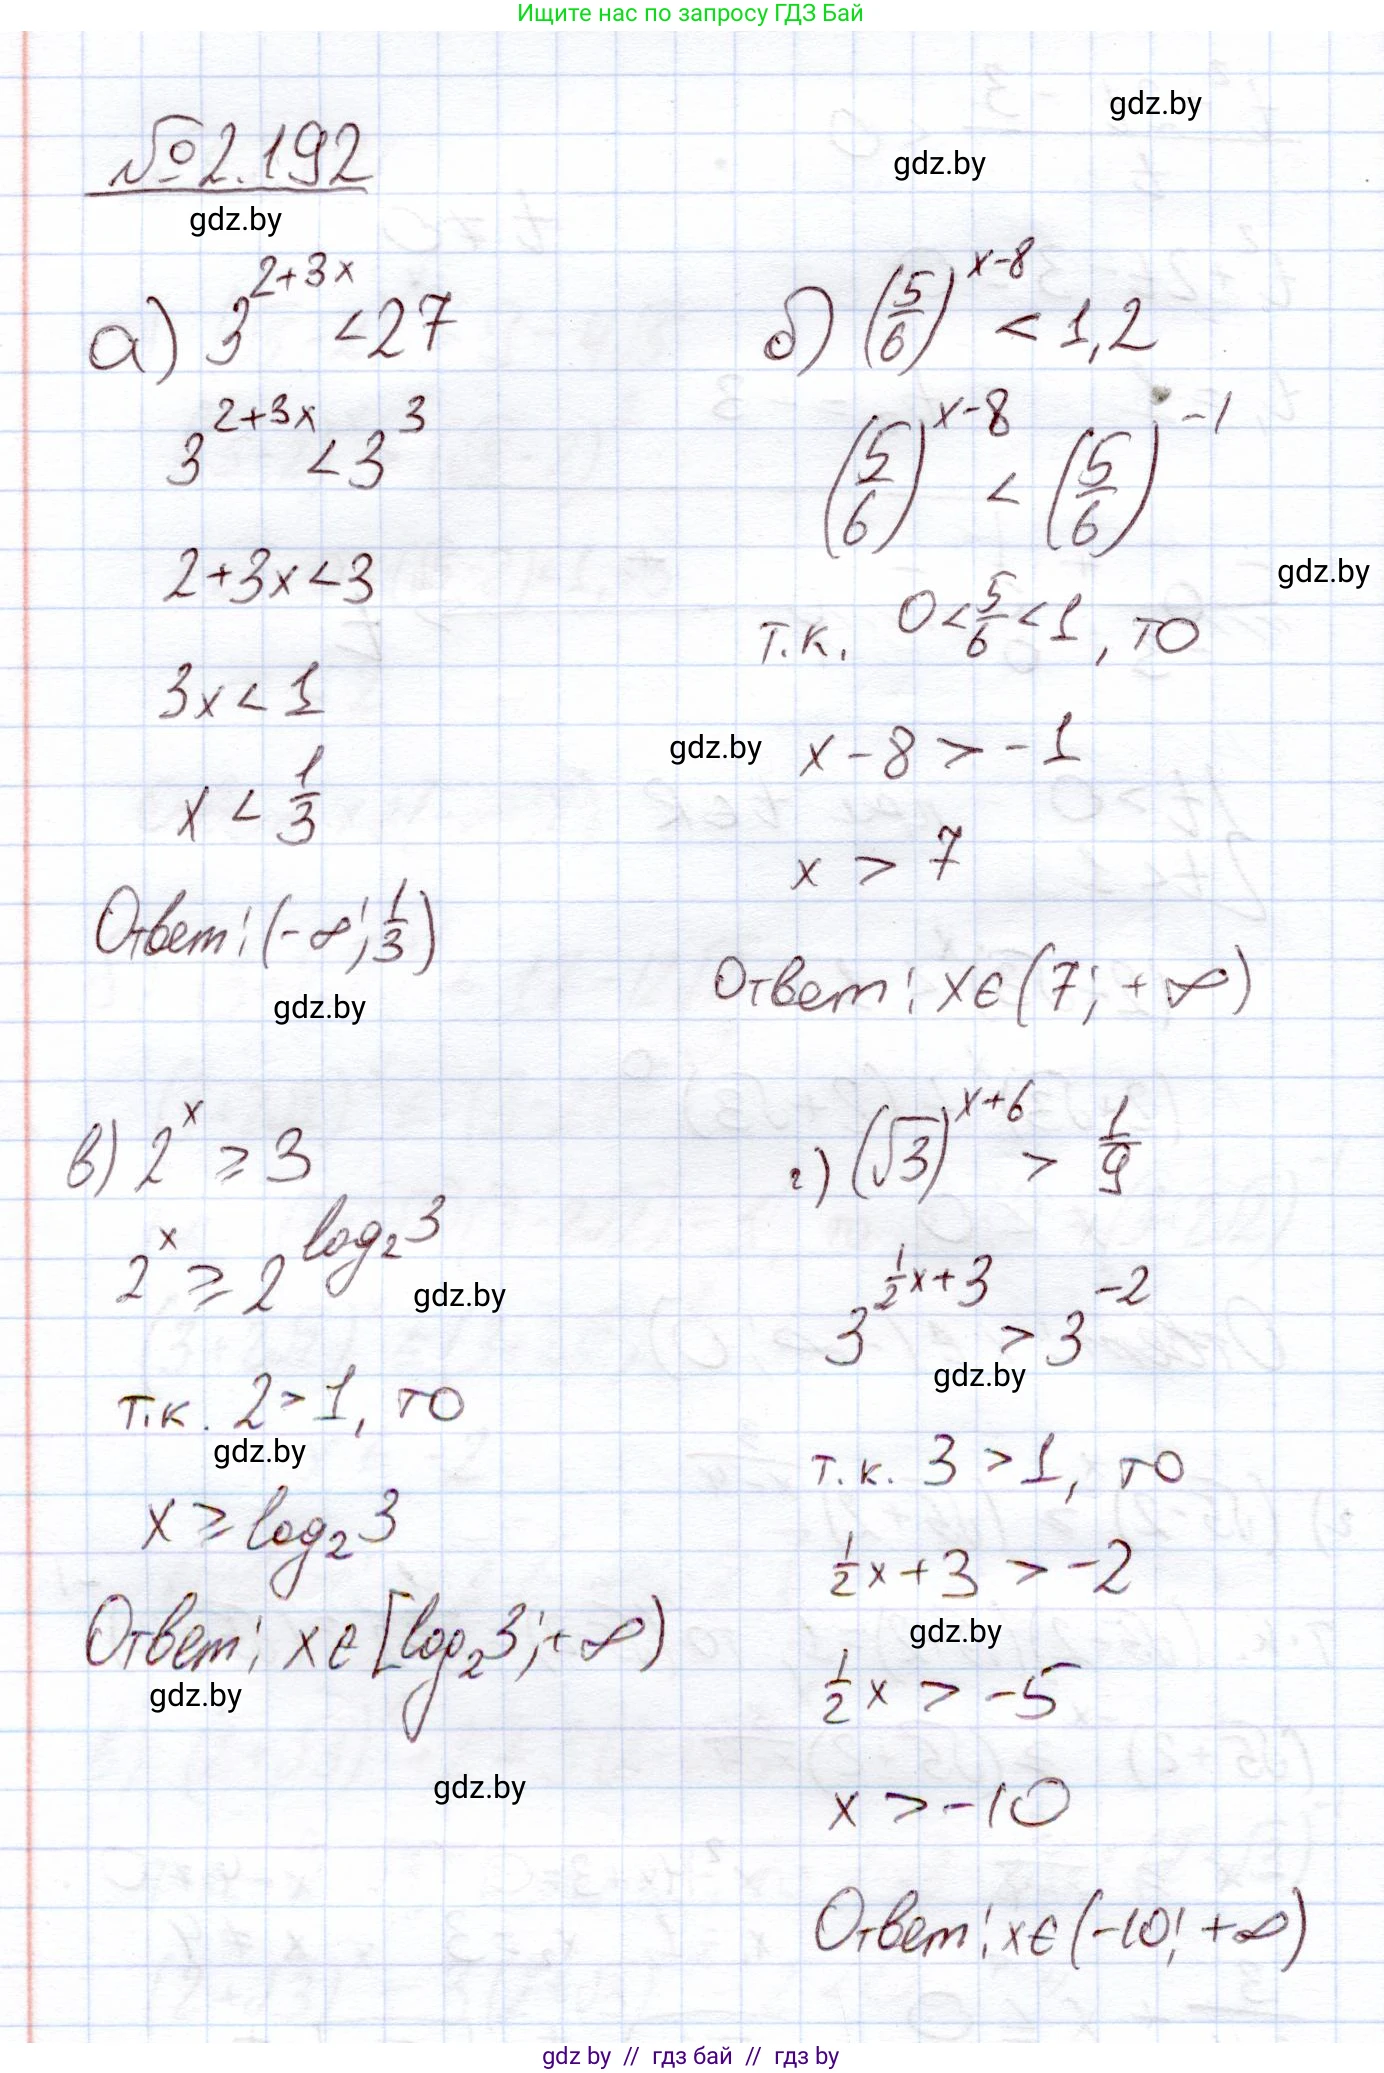 Ищите нас по запросу ГДЗ Бай
gdz.by
gdz.by
№2.192
gdz.by
а) 3^(2+3x) < 27
3^(2+3x) < 3^3
2+3x<3
3x < 1
x < 1/3
Ответ: (-∞; 1/3)
gdz.by
б) (5/6)^(x-8) < 1,2
(5/6)^(x-8) < (5/6)^(-1)
gdz.by
т.к. 0<5/6<1, то
gdz.by
x-8 > -1
x > 7
Ответ: x∈(7; +∞)
в) 2^x ≥ 3
2^x ≥ 2^(log₂3)
gdz.by
т.к. 2>1, то
gdz.by
x ≥ log₂3
Ответ: x∈[log₂3; +∞)
gdz.by
gdz.by
г) (√3)^(x+6) > 1/9
3^(1/2x+3) > 3^(-2)
gdz.by
т.к. 3>1, то
1/2x+3 > -2
gdz.by
1/2x > -5
x > -10
Ответ: x∈(-10; +∞)
gdz by // гдз бай // гдз by